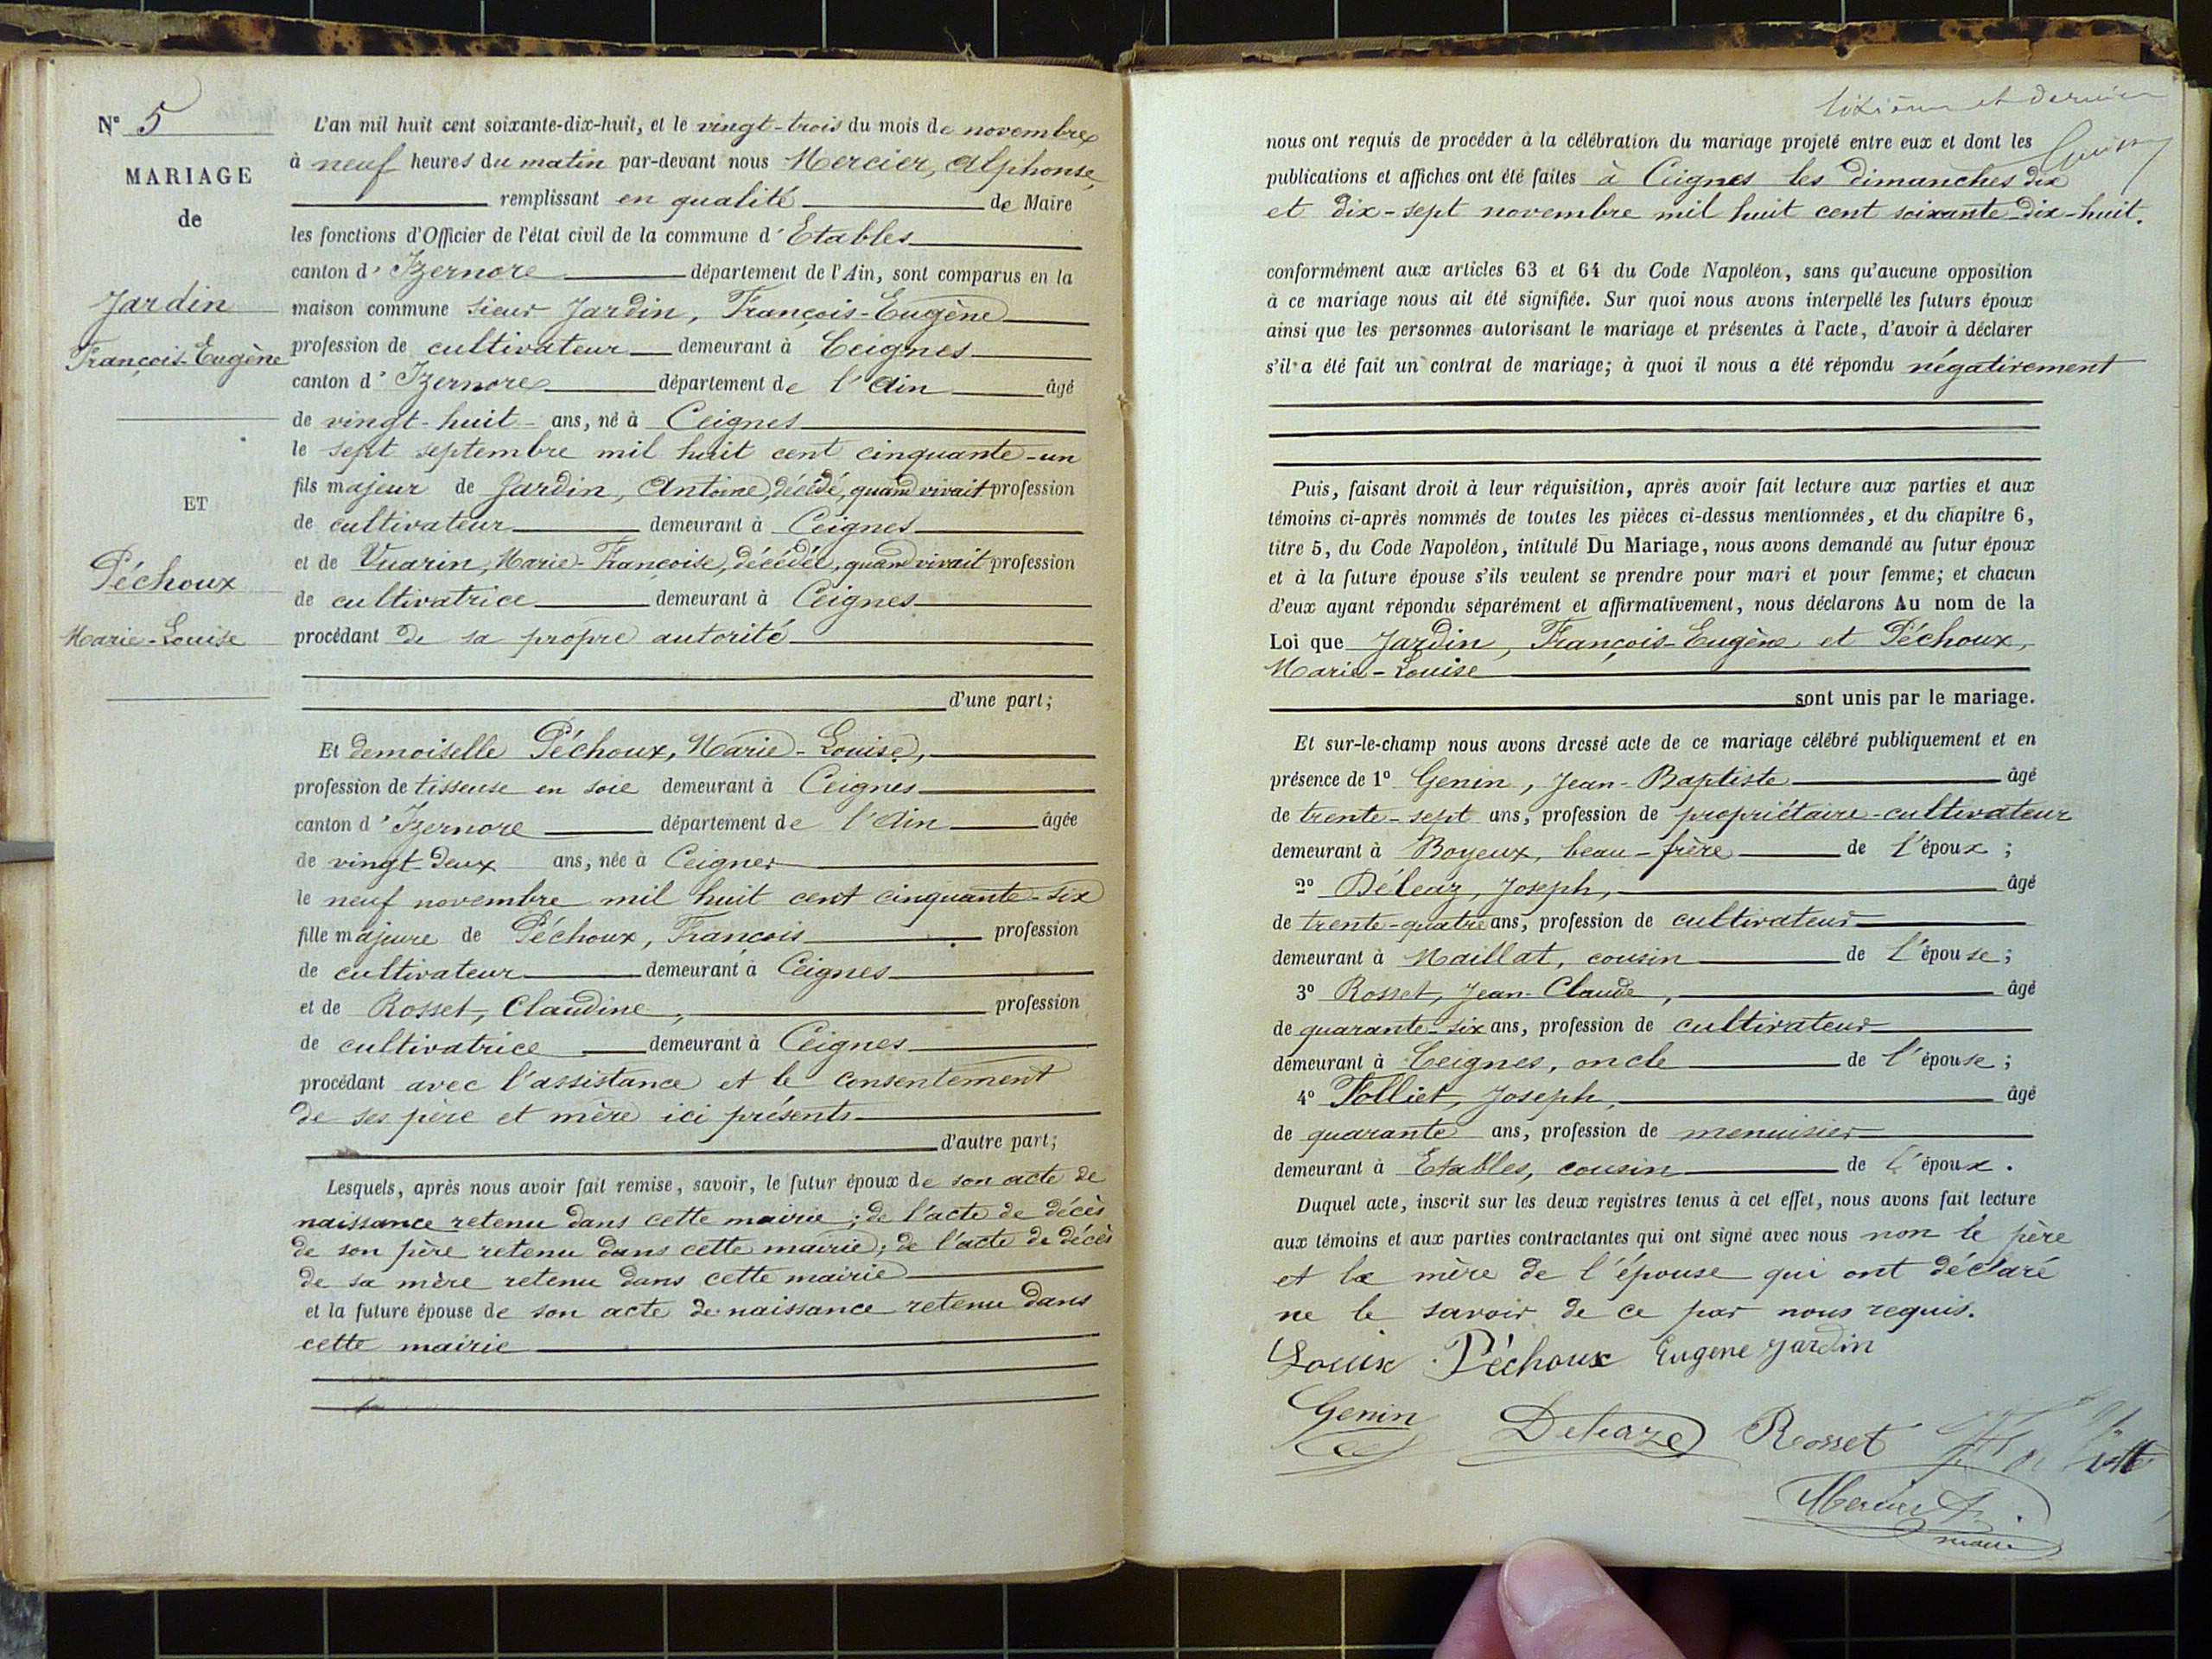 N° 5
MARIAGE
de
Jardin
François-Eugène
ET
Péchoux
Marie-Louise
L'an mil huit cent soixante-dix-huit, et le vingt-trois du mois de novembre
à neuf heures du matin par-devant nous Mercier, Alphonse,
remplissant en qualité de Maire
les fonctions d'Officier de l'état civil de la commune d'Etables
canton d'Izernore département de l'Ain, sont comparus en la
maison commune sieur Jardin, François-Eugène
profession de cultivateur demeurant à Ceignes
canton d'Izernore département de l'Ain âgé
de vingt-huit ans, né à Ceignes
le sept septembre mil huit cent cinquante-un
fils majeur de Jardin, Antoine, décédé, quand vivait profession
de cultivateur demeurant à Ceignes
et de Vuarin, Marie-Françoise, décédée, quand vivait profession
de cultivatrice demeurant à Ceignes
procédant de sa propre autorité
d'une part;
Et demoiselle Péchoux, Marie-Louise,
profession de tisseuse en soie demeurant à Ceignes
canton d'Izernore département de l'Ain âgée
de vingt-deux ans, née à Ceignes
le neuf novembre mil huit cent cinquante-six
fille majeure de Péchoux, François profession
de cultivateur demeurant à Ceignes
et de Rosset, Claudine, profession
de cultivatrice demeurant à Ceignes
procédant avec l'assistance et le consentement
de ses père et mère ici présents
d'autre part;
Lesquels, après nous avoir fait remise, savoir, le futur époux de son acte de
naissance retenu dans cette mairie; de l'acte de décès
de son père retenu dans cette mairie; de l'acte de décès
de sa mère retenu dans cette mairie
et la future épouse de son acte de naissance retenu dans
cette mairie
sixième et dernier
nous ont requis de procéder à la célébration du mariage projeté entre eux et dont les
publications et affiches ont été faites à Ceignes les dimanches dix
et dix-sept novembre mil huit cent soixante-dix-huit.
conformément aux articles 63 et 64 du Code Napoléon, sans qu'aucune opposition
à ce mariage nous ait été signifiée. Sur quoi nous avons interpellé les futurs époux
ainsi que les personnes autorisant le mariage et présentes à l'acte, d'avoir à déclarer
s'il a été fait un contrat de mariage; à quoi il nous a été répondu négativement
Puis, faisant droit à leur réquisition, après avoir fait lecture aux parties et aux
témoins ci-après nommés de toutes les pièces ci-dessus mentionnées, et du chapitre 6,
titre 5, du Code Napoléon, intitulé Du Mariage, nous avons demandé au futur époux
et à la future épouse s'ils veulent se prendre pour mari et pour femme; et chacun
d'eux ayant répondu séparément et affirmativement, nous déclarons Au nom de la
Loi que Jardin, François-Eugène et Péchoux,
Marie-Louise
sont unis par le mariage.
Et sur-le-champ nous avons dressé acte de ce mariage célébré publiquement et en
présence de 1° Genin, Jean-Baptiste âgé
de trente-sept ans, profession de propriétaire-cultivateur
demeurant à Boyeux, beau-frère de l'époux;
2° Déléaz, Joseph, âgé
de trente-quatre ans, profession de cultivateur
demeurant à Maillat, cousin de l'épouse;
3° Rosset, Jean-Claude, âgé
de quarante-six ans, profession de cultivateur
demeurant à Ceignes, oncle de l'épouse;
4° Folliet, Joseph, âgé
de quarante ans, profession de menuisier
demeurant à Etables, cousin de l'époux.
Duquel acte, inscrit sur les deux registres tenus à cet effet, nous avons fait lecture
aux témoins et aux parties contractantes qui ont signé avec nous non le père
et la mère de l'épouse qui ont déclaré
ne le savoir de ce par nous requis.
Louise Péchoux Eugene Jardin
Genin Deleaze Rosset
Mercier A.
maire